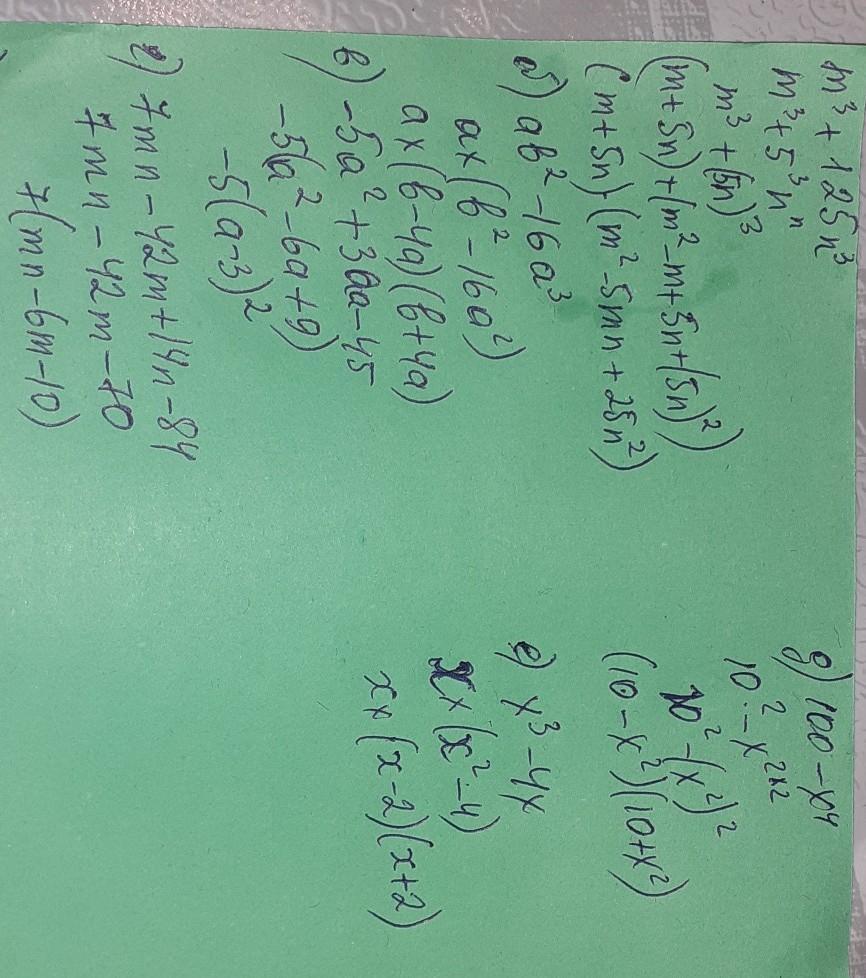 m³ + 125n³
m³ + 5³nⁿ
m³ + (5n)³
(m + 5n) + (m² - m + 5n + (5n)²)
(m + 5n) · (m² - 5mn + 25n²)
б) ab² - 16a³
a × (b² - 16a²)
a × (b - 4a)(b + 4a)
в) -5a² + 30a - 45
-5(a² - 6a + 9)
-5(a - 3)²
г) 7mn - 42m + 14n - 84
7mn - 42m - 70
7(mn - 6m - 10)
д) 100 - x⁴
10² - x²ˣ²
10² - (x²)²
(10 - x²)(10 + x²)
е) x³ - 4x
x × (x² - 4)
x × (x - 2)(x + 2)